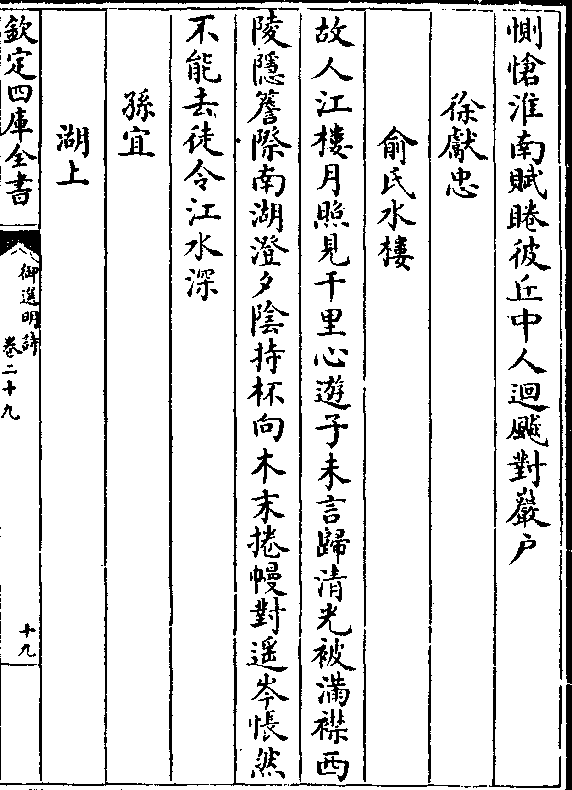 惻愴淮南賦睠彼丘中人迴飇對巖户
徐獻忠
俞氏水樓
故人江樓月照見千里心遊子未言歸清光被滿襟西
陵隱簷際南湖澄夕陰持杯向木末捲幔對遥岑悵然
不能去徒令江水深
孫宜
湖上
欽定四庫全書
御選明詩
卷二十九
十九